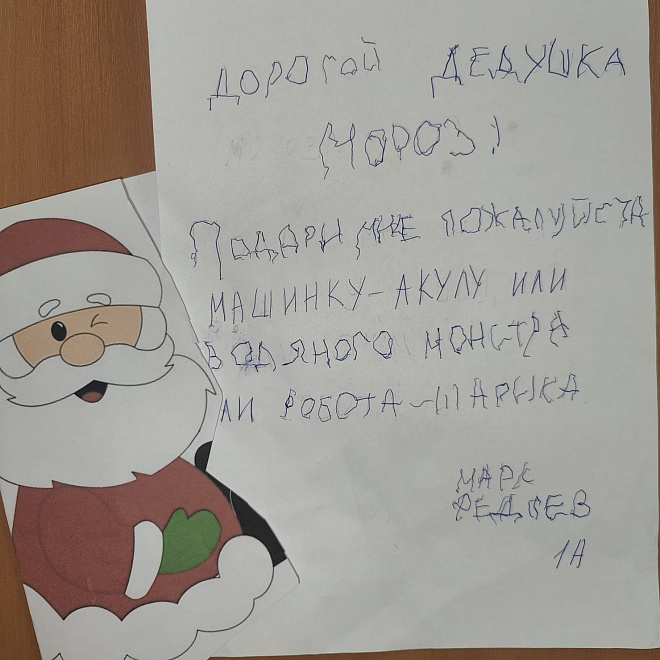 ДОРОГОЙ ДЕДУШКА
МОРОЗ!
ПОДАРИ МНЕ ПОЖАЛУЙСТА
МАШИНКУ-АКУЛУ ИЛИ
ВОДЯНОГО МОНСТРА
ЛИ РОБОТА-ШАРИКА
МАРК
1А